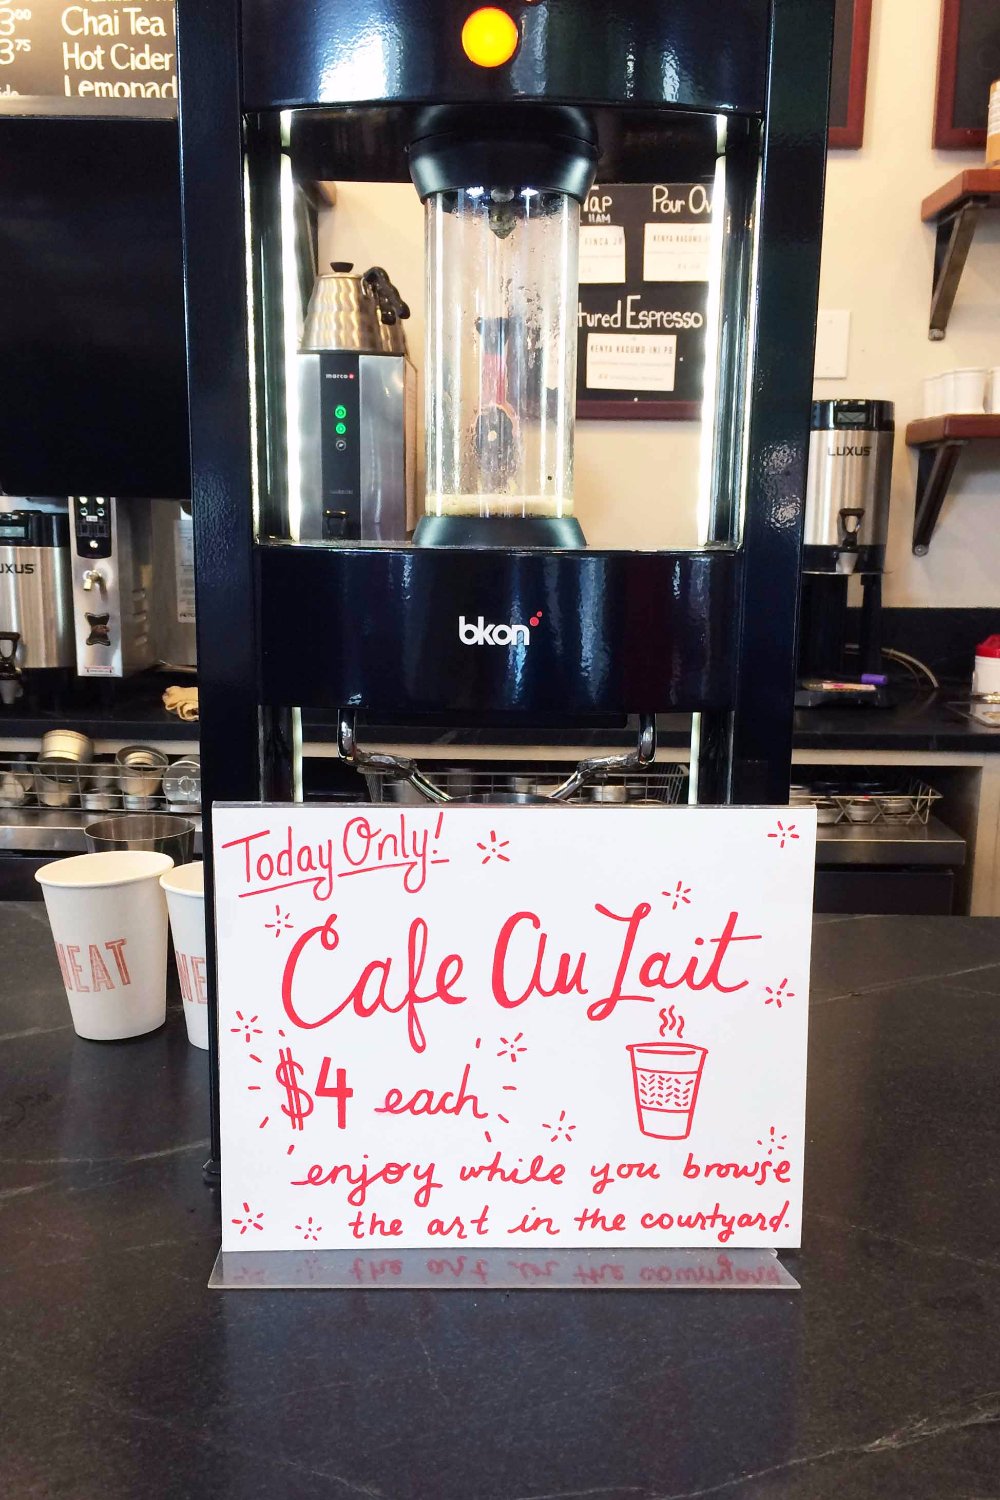 3⁰⁰ Chai Tea
3⁷⁵ Hot Cider
Lemonad
Tap
11AM
Pour Ov
tured Espresso
KENYA KAGUMO-INI PB
marco
LUXUS
UXUS
bkon
Today Only!
Cafe Au Lait
$4 each
enjoy while you browse
the art in the courtyard.
HEAT